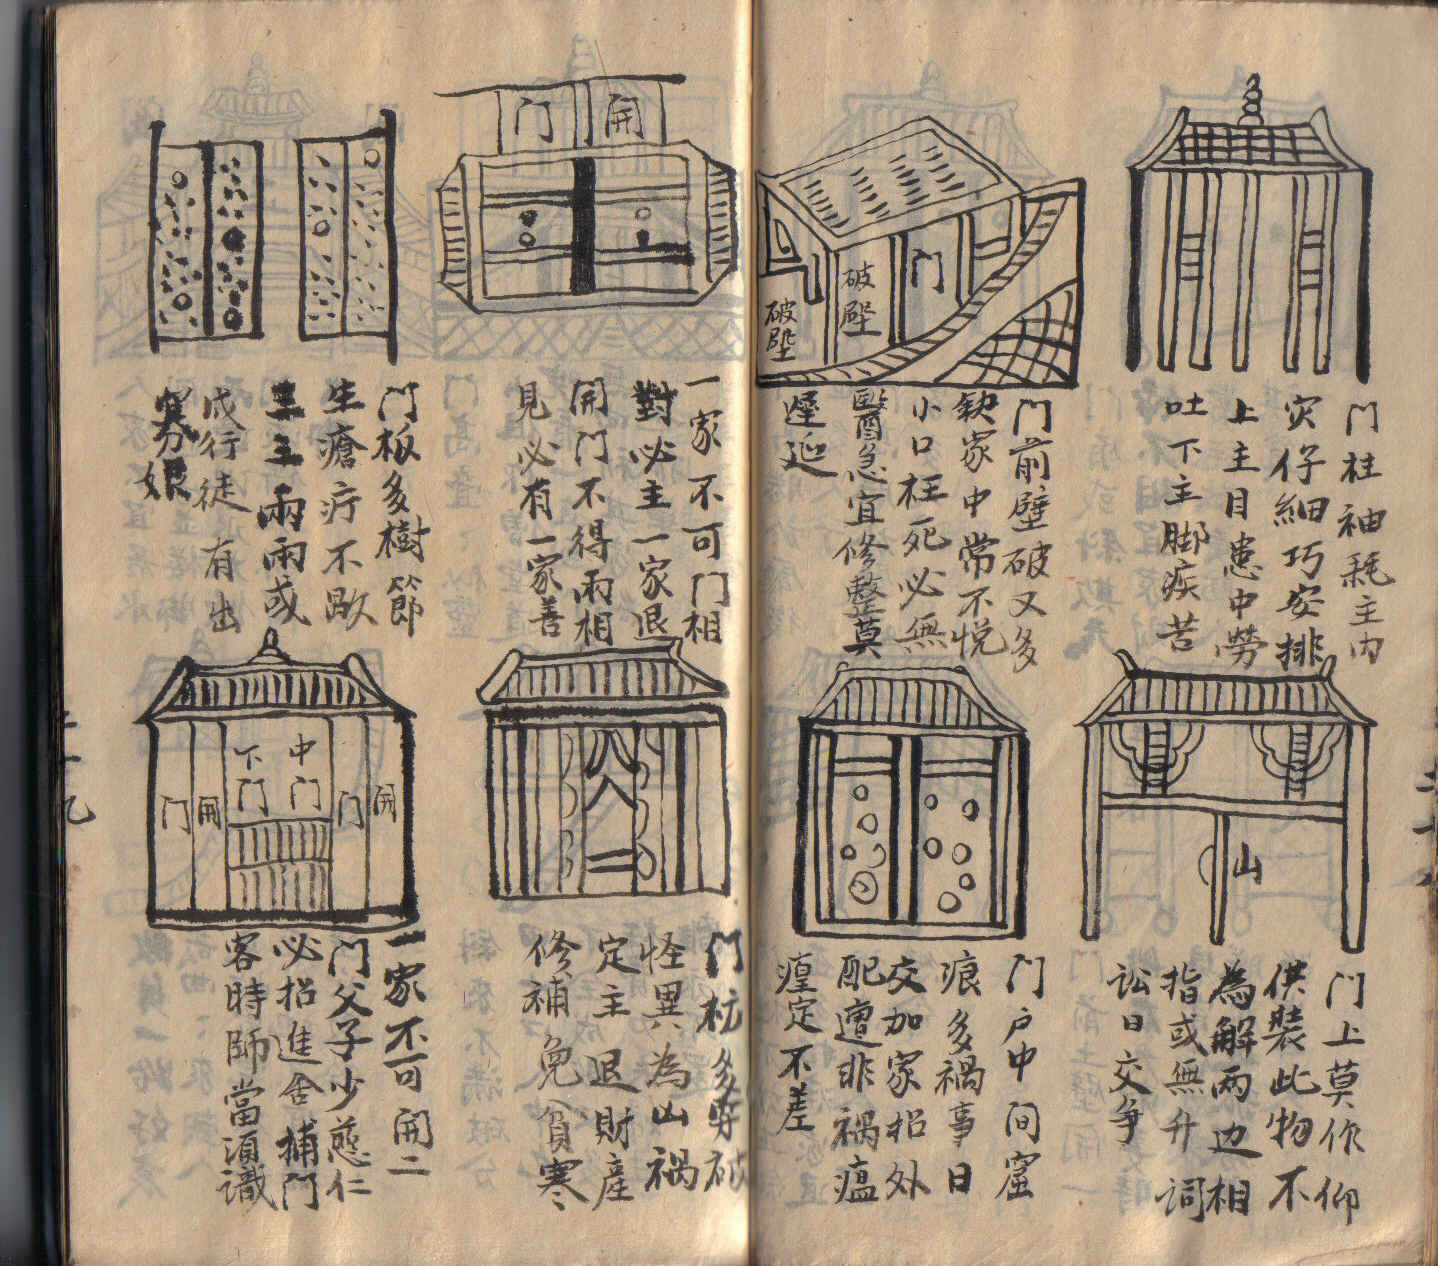 门柱袖耗主内
灾仔細巧安排
上主目患中勞
吐下主脚疾苦
门前壁破又多
缺家中常不悦
小口枉死必無
醫急宜修整莫
遲延
门
破壁
破壁
门上莫作仰
供裝此物不
為解两边相
指或無升詞
訟日交争
山
门户中间窟
痕多禍事日
交加家招外
配遭非禍瘟
瘟定不差
開
门
一家不可门相
對必主一家退
開门不得兩相
見必有一家善
门板多樹節
生瘡疔不歇
三主兩兩或
戍行徒有出
寡娘
门枋多穿破
怪異為山禍
定主退財産
修補免貧寒
開
门
中门
下门
開
门
一家不可開二
门父子少慈仁
必招進舍捕门
客時師當須識
二十九